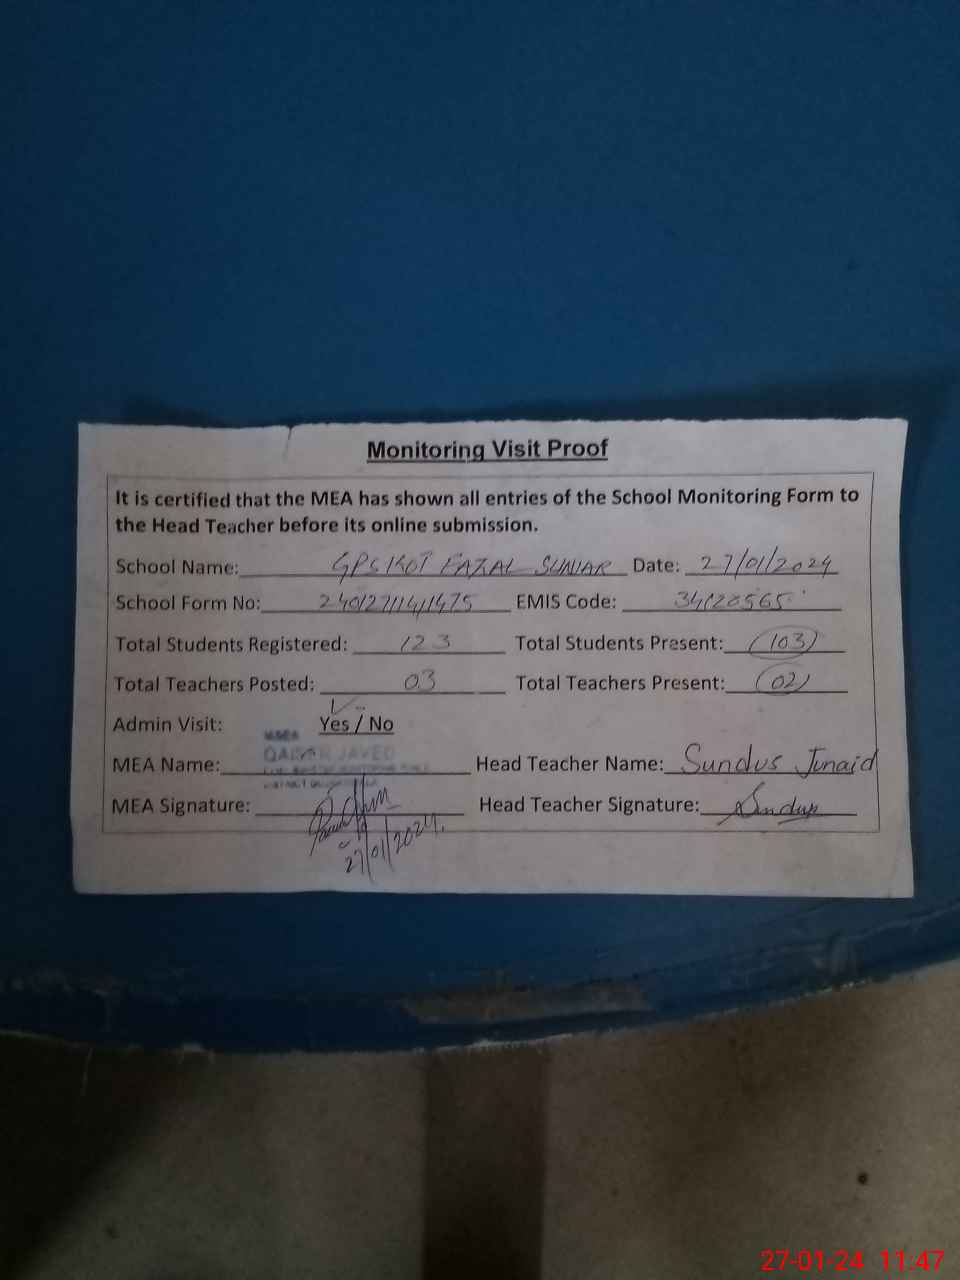 Monitoring Visit Proof
It is certified that the MEA has shown all entries of the School Monitoring Form to
the Head Teacher before its online submission.
School Name: GPS KOT FAZAL SUNIAR Date: 27/01/2024
School Form No: 240127141475 EMIS Code: 34120565
Total Students Registered: 123 Total Students Present: (103)
Total Teachers Posted: 03 Total Teachers Present: (02)
Admin Visit: Yes / No
MEA Name: QAISAR JAVED Head Teacher Name: Sundus Junaid
MEA Signature: Head Teacher Signature: Sundus
27/01/2024.
27-01-24 11:47